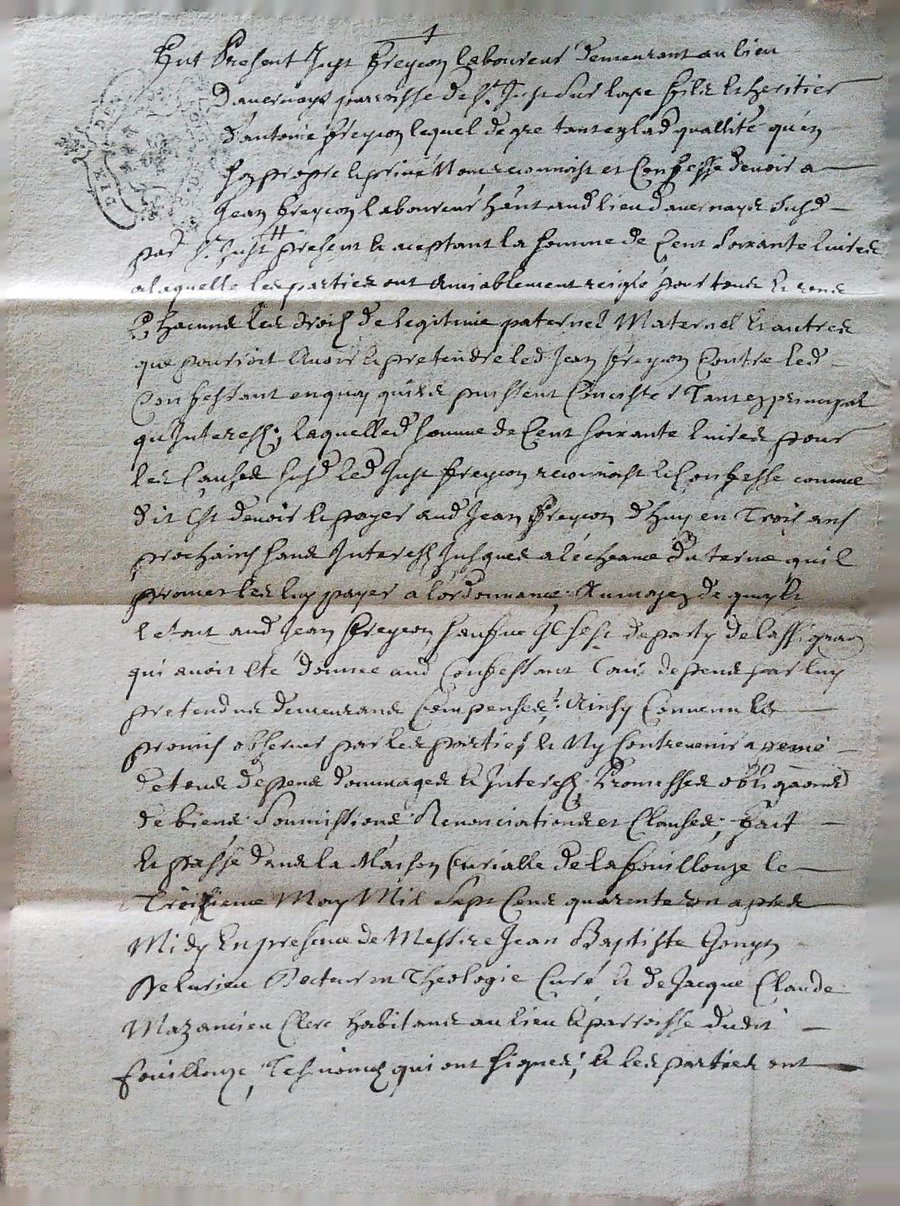 Fut Present Just Freycon laboureur demeurant au lieu
Davernays parroisse de St Just sur loyre fils et heritier
d'antoine Freycon lequel de gre tant en lad quallité qu'en
son propre et privé Nom reconnoist et Confesse devoir a
Jean Freycon laboureur hant aud lieu davernays susd
par St Just present et aceptant la somme de Cent soixante livres
a laquelle les parties ont amiablement reiglé pour tous et
Chacuns les droits de legitime paternel Maternel et autres
que pourroit avoir et pretendre led Jean Freycon Contre led
Confessant en quoy quils puissent Concister Tant en principal
qu'Interests, laquelled somme de Cent soixante livres pour
les Causes susd led Just Freycon reconnoist et Confesse comme
dit est devoir et payer aud Jean Freycon d'huy en Trois ans
prochains sans Interests Jusques a lécheance du terme quil
promet les luy payer a l'ordonnance; Aumoyen de quoy
led Jean Freycon s'est departy de lassignaon
qui avoit été donnée aud Confessant Tous depens par luy
pretendus demeurans Compensés; Ainsy Convenu et
promis observer par les parties, et Ny Contrevenir a peine
de tous depens dommages et Interests, Promesses obligaons
de biens Soumissions Renonciations et Clauses; Fait
et passé dans la Maison Curialle de lafouillouze le
Troisieme May Mil Sept Cens quarente un apres
Midy En presence de Messire Jean Baptiste
Delurieu Docteur en Theologie Curé et de Jacque Claude
Mazancieu Clerc habitans au lieu et parroisse dudit
fouillouze, Tesmoins qui ont signés; et les parties ont